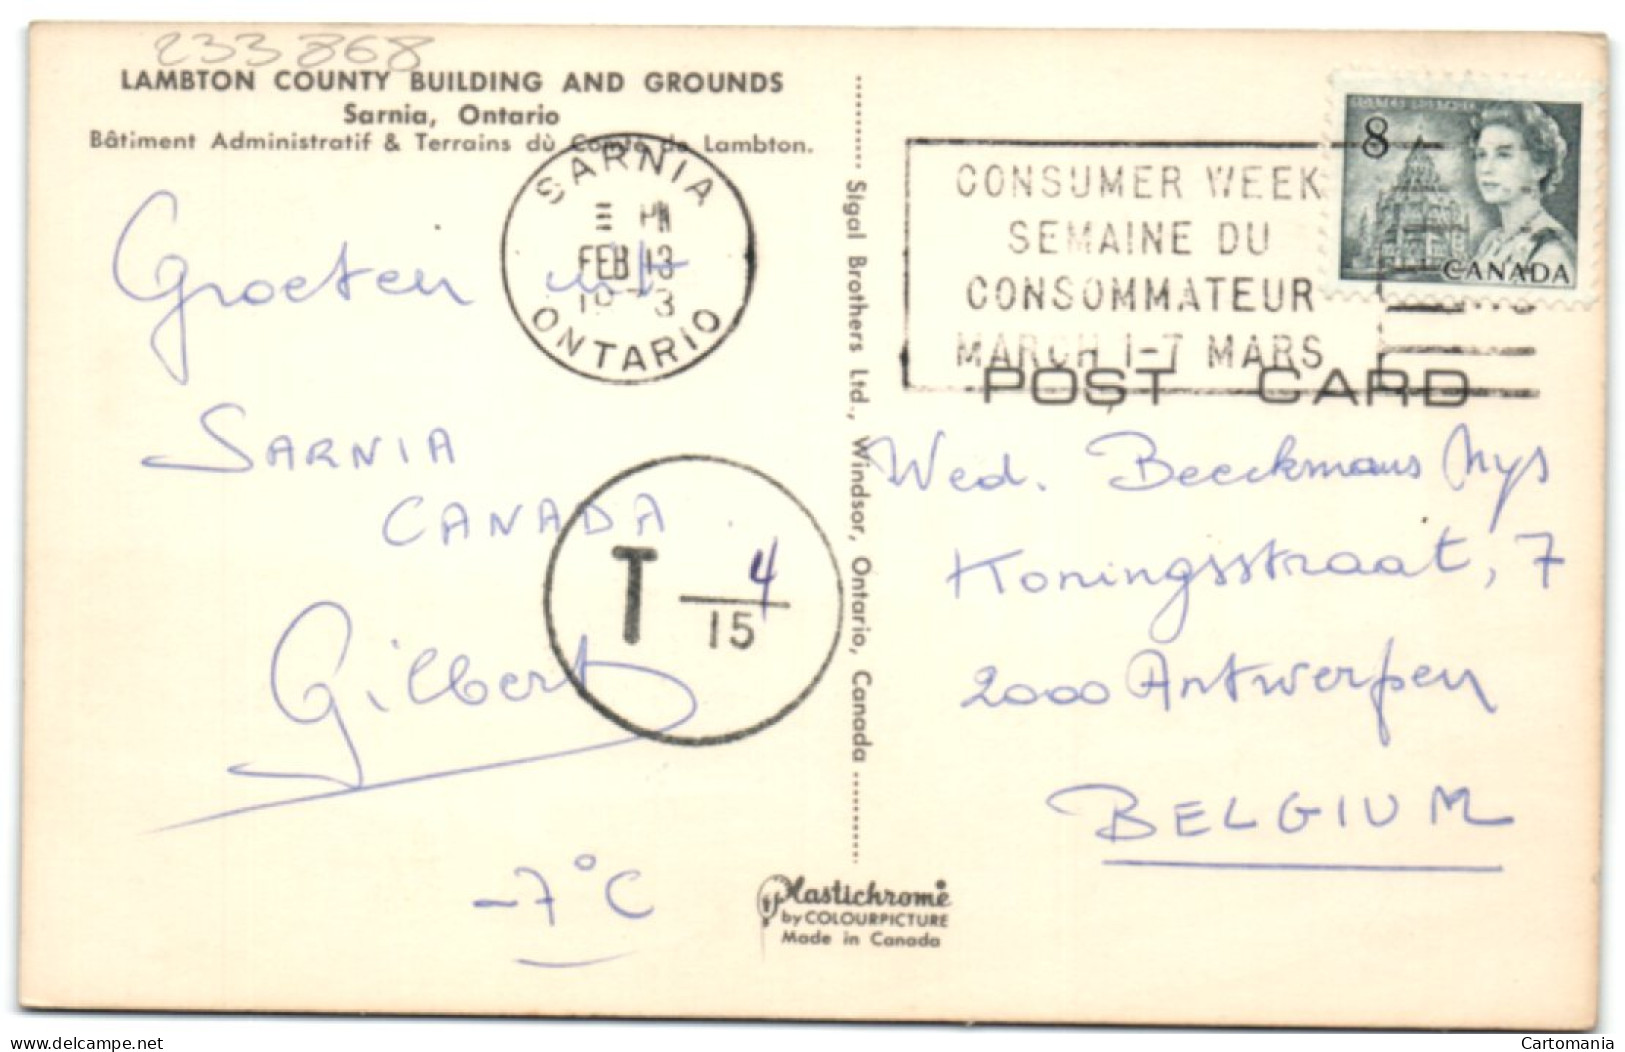 233868
LAMBTON COUNTY BUILDING AND GROUNDS
Sarnia, Ontario
Bâtiment Administratif & Terrains dù Comté de Lambton.
SARNIA
PM
FEB 13
1973
ONTARIO
CONSUMER WEEK
SEMAINE DU
CONSOMMATEUR
MARCH 1-7 MARS
8
CANADA
POST CARD
Groeten uit
SARNIA
CANADA
Gilbert
-7°C
T 4
15
Sigal Brothers Ltd., Windsor, Ontario, Canada
Wed. Beeckmans Nys
Koningsstraat, 7
2000 Antwerpen
BELGIUM
Plastichrome
by COLOURPICTURE
Made in Canada
www.delcampe.net
Cartomania